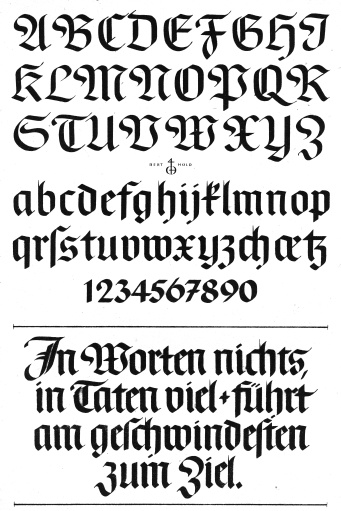 ABCDEFGHI
KLMNOPQR
STUVWXYZ
BERT HOLD
abcdefghijklmnop
qrſstuvwxyzchœtz
1234567890
In Worten nichts,
in Taten viel·führt
am geſchwindeſten
zum Ziel.